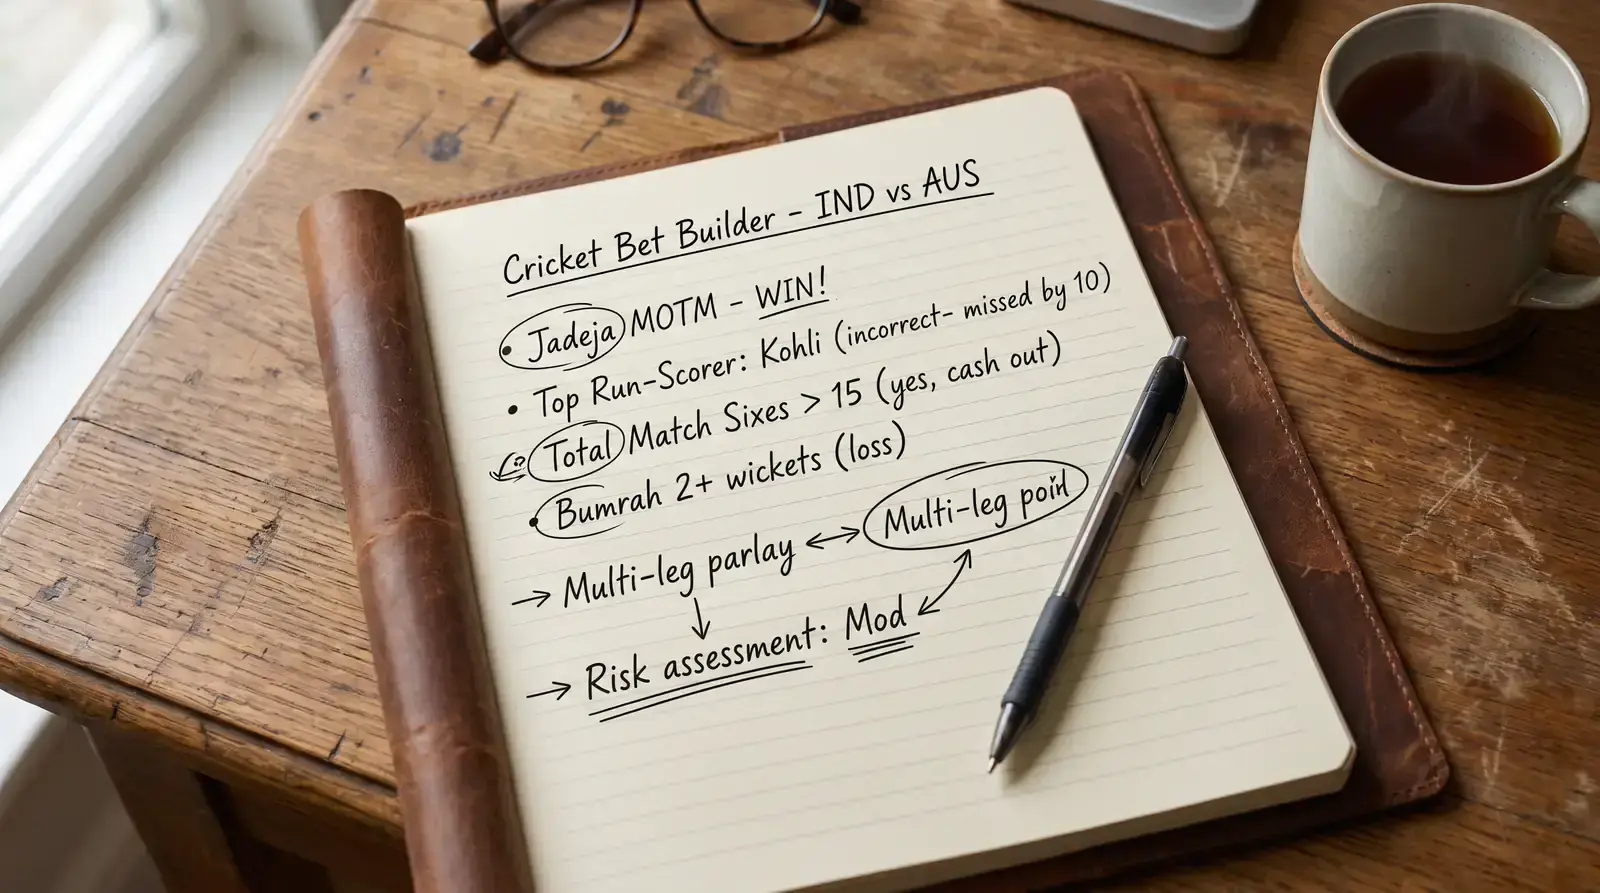 Cricket Bet Builder - IND vs AUS
• Jadeja MOTM - WIN!
• Top Run-Scorer: Kohli (incorrect- missed by 10)
Total Match Sixes > 15 (yes, cash out)
• Bumrah 2+ wickets (loss)
→ Multi-leg parlay ↔ Multi-leg
→ Risk assessment: Mod